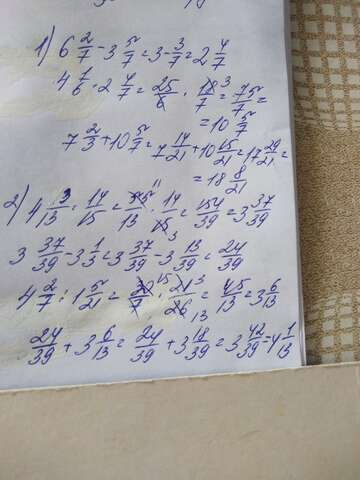 1) 6 2/7 - 3 5/7 = 3 - 3/7 = 2 4/7
4 1/6 · 2 4/7 = 25/6 · 18 3/7 = 75/7 =
= 10 5/7
7 2/3 + 10 5/7 = 7 14/21 + 10 15/21 = 17 29/21 =
= 18 8/21
2) 4 3/13 · 14/15 = 55 11/13 · 14/15 3 = 154/39 = 3 37/39
3 37/39 - 3 1/3 = 3 37/39 - 3 13/39 = 24/39
4 2/7 : 1 5/21 = 30 15/7 · 21 3/26 13 = 45/13 = 3 6/13
24/39 + 3 6/13 = 24/39 + 3 18/39 = 3 42/39 = 4 1/13